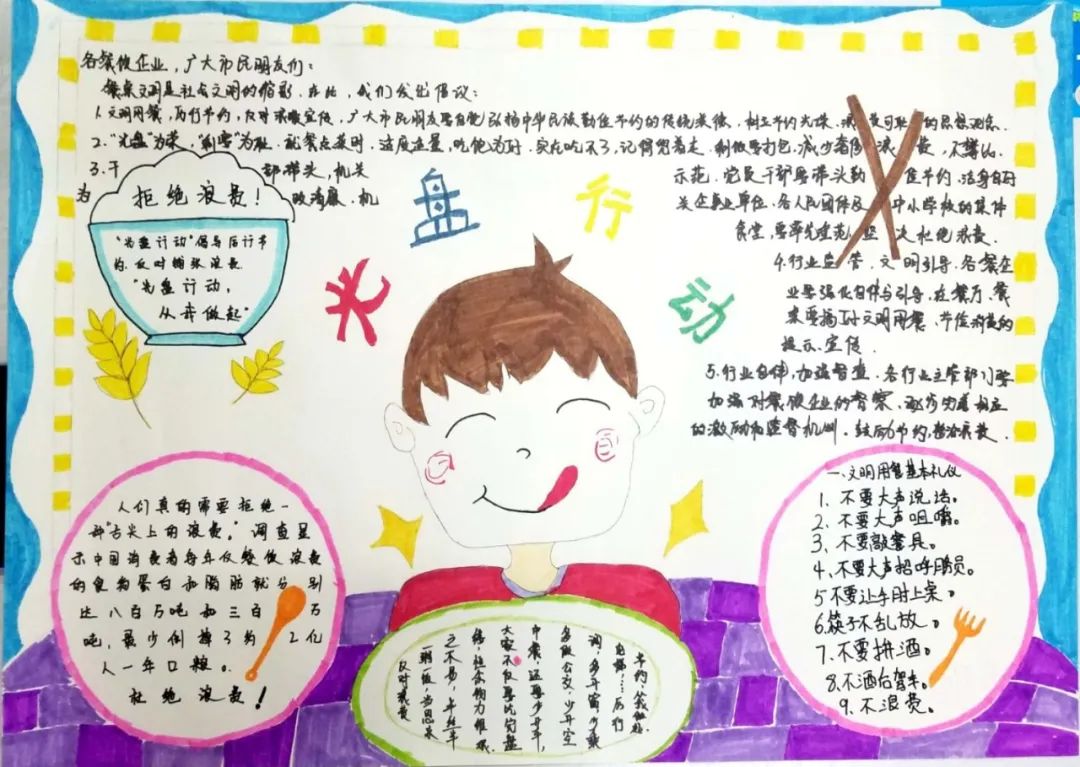 各餐饮企业，广大市民朋友们：
餐桌文明是社会文明的缩影，在此，我们发出倡议：
1.文明用餐，厉行节约，反对浪费宣传，广大市民朋友要自觉弘扬中华民族勤俭节约的传统美德，树立节约光荣，浪费可耻的思想观念.
2."光盘"为荣，"剩宴"为耻.就餐点菜时，适度适量，吃饱为好.实在吃不了，记得兜着走.剩饭要打包，减少奢侈浪费，不攀比.
3.干部带头，机关示范.党员干部要带头勤俭节约.洁身自好
为 机
关企事业单位.各人民团体及中小学校的集体
食堂，要率先垂范，坚决杜绝浪费.
4.行业监管，文明引导.各餐企
业要强化自律与引导，在餐厅、餐
桌要摆好文明用餐、节俭消费的
提示、宣传.
5.行业自律，加强督查.各行业主管部门要
加强对餐饮企业的督察，逐步完善相应
的激励和监督机制.鼓励节约，惩治浪费.
拒绝浪费！
"光盘行动"倡导厉行节
约.反对铺张浪费.
"光盘行动，
从我做起"
光盘行动
人们真的需要拒绝一
部"舌尖上的浪费。"调查显
示中国消费者每年仅餐饮浪费
的食物蛋白和脂肪就分别
达八百万吨和三百万
吨，最少倒掉了约2亿
人一年口粮。
杜绝浪费！
一、文明用餐基本礼仪
1、不要大声说话。
2、不要大声咀嚼。
3、不要敲餐具。
4、不要大声招呼服员。
5不要让手肘上桌。
6.筷子不乱放。
7、不要拼酒。
8、不酒后驾车。
9、不浪费。
厉行
词，多开窗，少开空
多做公交，少开车，
中餐，还要少开车，
大家不仅要吃完盘
缕，恒念物力维艰.
之不易，半丝半
一粥一饭，当思来
反对浪费